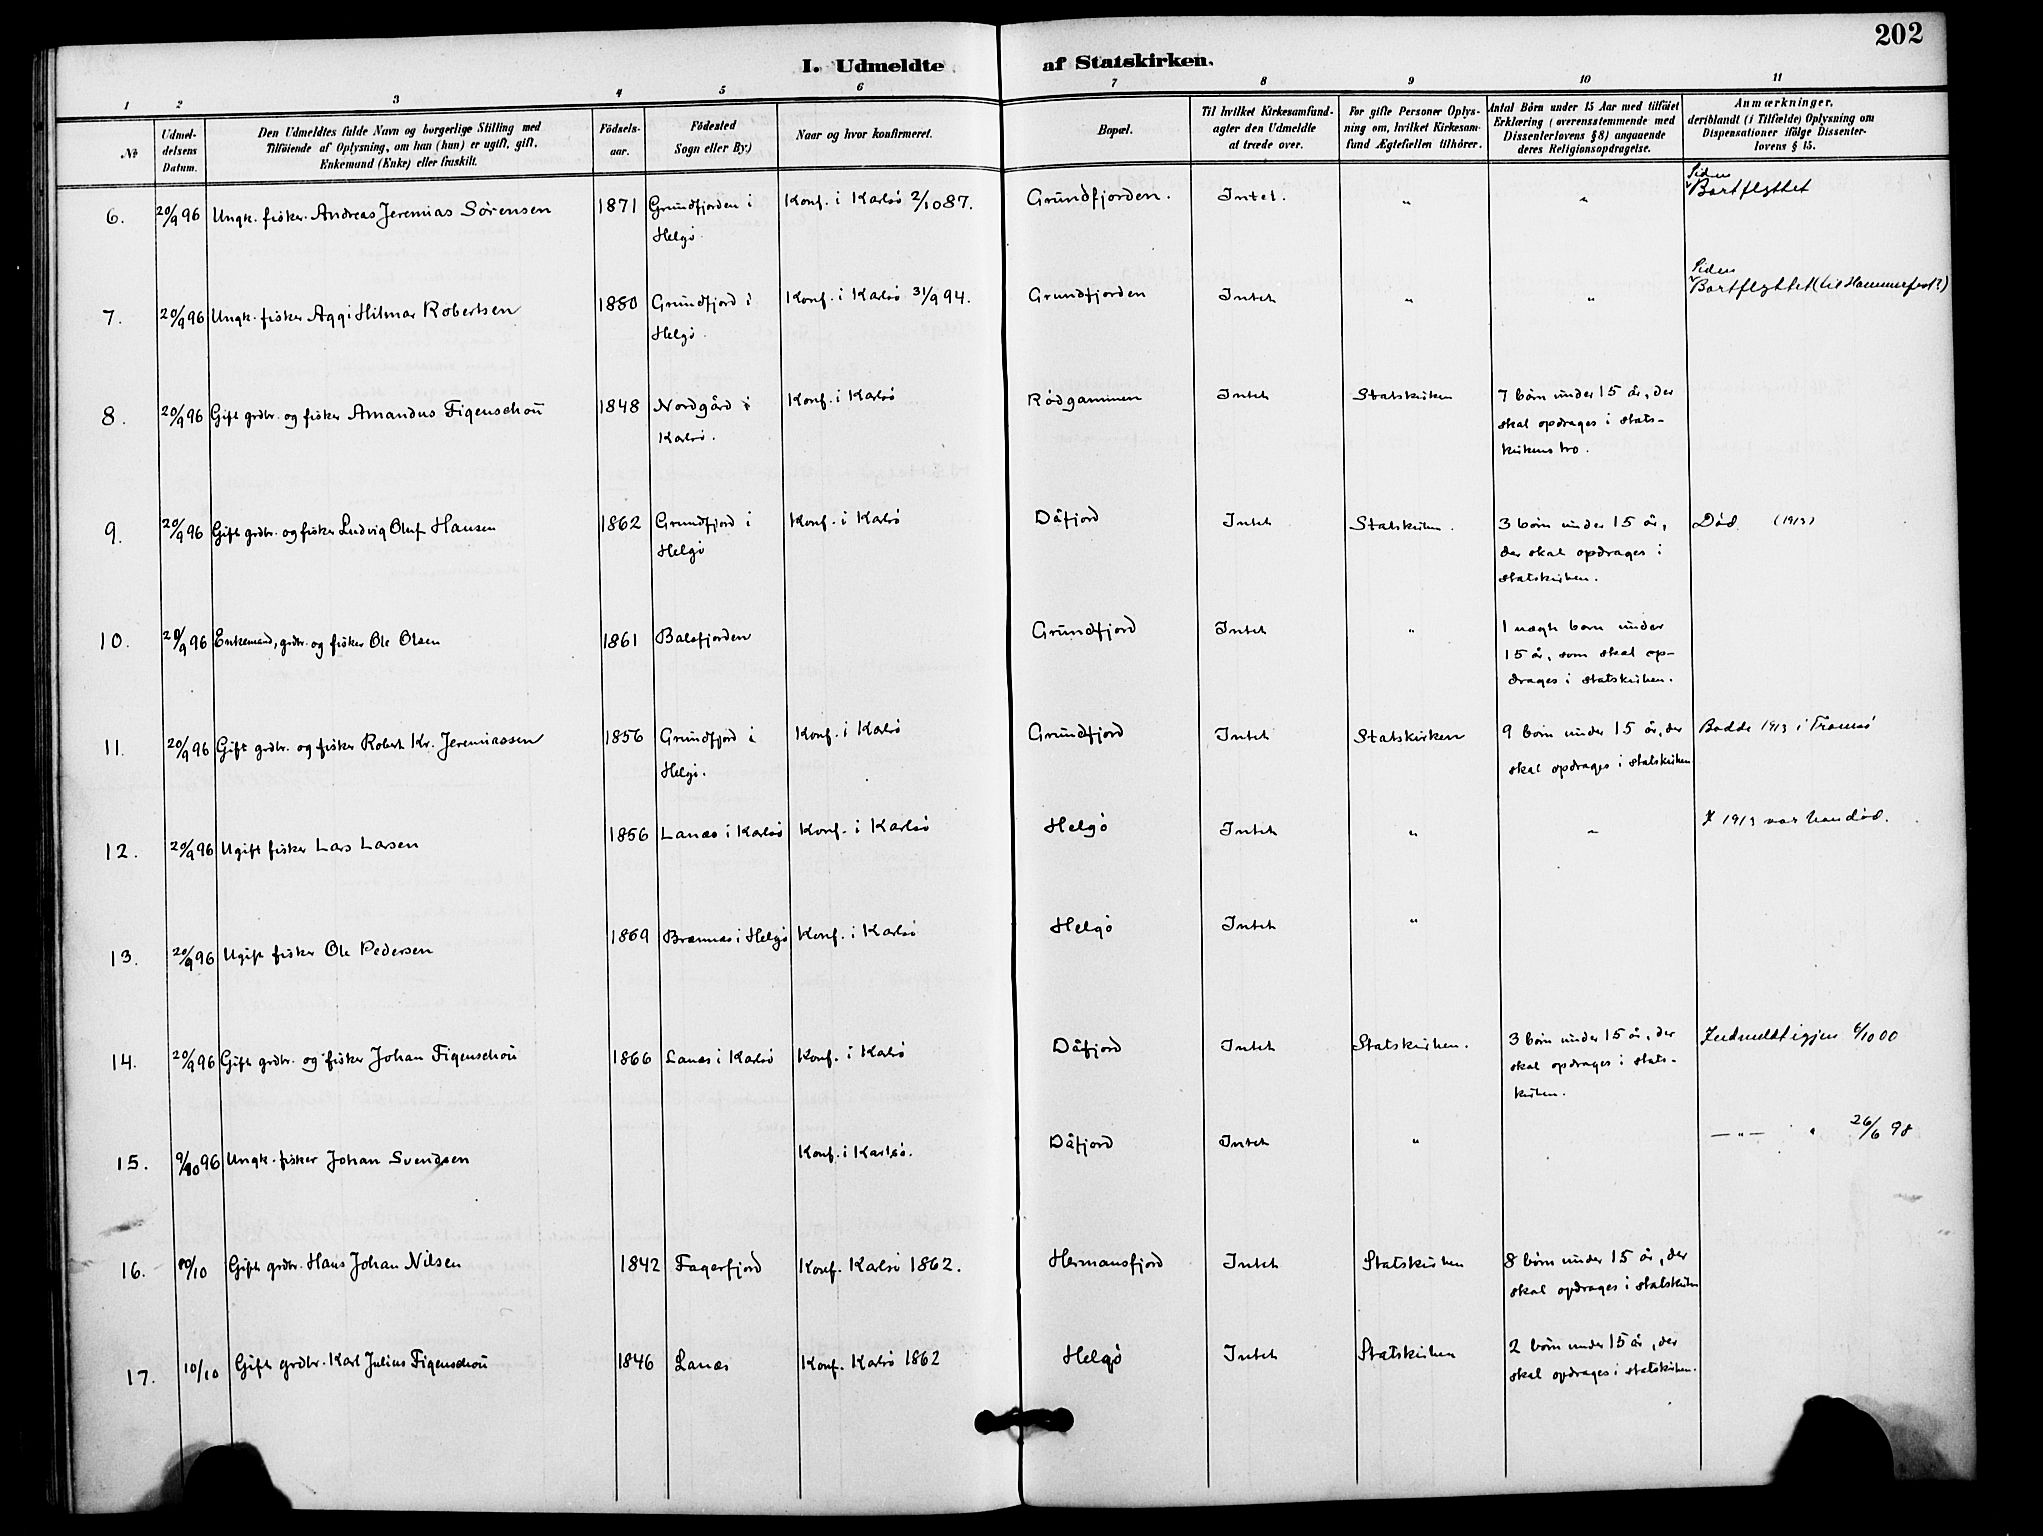 202
I. Udmeldte af Statskirken.
1 2 3 4 5 6 7 8 9 10 11
№
Udmel-
delsens
Datum.
Den Udmeldtes fulde Navn og borgerlige Stilling med
Tilföiende af Oplysning, om han (hun) er ugift, gift,
Enkemand (Enke) eller fraskilt.
Födsels-
aar.
Födested
Sogn eller By.)
Naar og hvor konfirmeret.
Bopæl.
Til hvilket Kirkesamfund-
agter den Udmeldte
at træde over.
For gifte Personer Oplys-
ning om, hvilket Kirkesam-
fund Ægtefællen tilhörer.
Antal Börn under 15 Aar med tilföiet
Erklæring (overensstemmende med
Dissenterlovens § 8) angaaende
deres Religionsopdragelse.
Anmærkninger,
deriblandt (i Tilfælde) Oplysning om
Dispensationer ifölge Dissenter-
lovens § 15.
Siden
6. 20/9 96 Ungk. fisker. Andreas Jeremias Sørensen 1871 Grundfjorden i Konf. i Karlsö 2/10 87. Grundfjorden. Intet. " " Bortflyttet
Helgö.
Siden
7. 20/9 96 Ungk. fisker Aggi Hilmar Robertsen 1880 Grundfjord i Konf. i Karlsö 31/9 94. Grundfjorden Intet " " Bortflyttet (til Hammerfest?)
Helgö.
8. 20/9 96 Gift grdbr. og fisker Amandus Figenschou 1848 Nordgård i Konf. i Karlsö Rödgammen Intet Statskirken 7 börn under 15 år, der
Karlsö. skal opdrages i stats-
kirkens tro.
9. 20/9 96 Gift grdbr. og fisker Ludvig Oluf Hansen 1862 Grundfjord i Konf. i Karlsö Dåfjord Intet Statskirken. 3 börn under 15 år, Död (1913)
Helgö der skal opdrages i
statskirken.
10. 20/9 96 Enkemand, grdbr. og fisker Ole Olsen 1861 Balsfjorden Grundfjord Intet " 1 uægte barn under
15 år, som skal op-
drages i statskirken.
11. 20/9 96 Gift grdbr. og fisker Robert Kr. Jeremiassen 1856 Grundfjord i Konf. i Karlsö Grundfjord Intet Statskirken 9 börn under 15 år, der Bodde 1913 i Tromsö
Helgö. skal opdrages i statskirken
12. 20/9 96 Ugift fisker Lars Larsen 1856 Lanæs i Karlsö Konf. i Karlsö Helgö Intet " " I 1913 var han död.
13. 20/9 96 Ugift fisker Ole Pedersen 1869 Brænnæs i Helgö Konf. i Karlsö Helgö Intet "
14. 20/9 96 Gift grdbr. og fisker Johan Figenschou 1866 Lanæs i Karlsö Konf. i Karlsö Dåfjord Intet Statskirken. 3 börn under 15 år, der Indmeldt igjen 6/10 00
skal opdrages i stats-
kirken.
15. 9/10 96 Ungk. fisker Johan Svendsen Konf. i Karlsö. Dåfjord Intet " — " — " 26/6 98
16. 10/10 Gift grdbr. Hans Johan Nilsen 1842 Fagerfjord Konf. Karlsö 1862. Hermansfjord Intet Statskirken 8 börn under 15 år, der
skal opdrages i statskirken
17. 10/10 Gift grdbr. Karl Julius Figenschou 1846 Lanæs Konf. Karlsö 1862 Helgö Intet Statskirken 2 börn under 15 år, der
skal opdrages i statskirken.